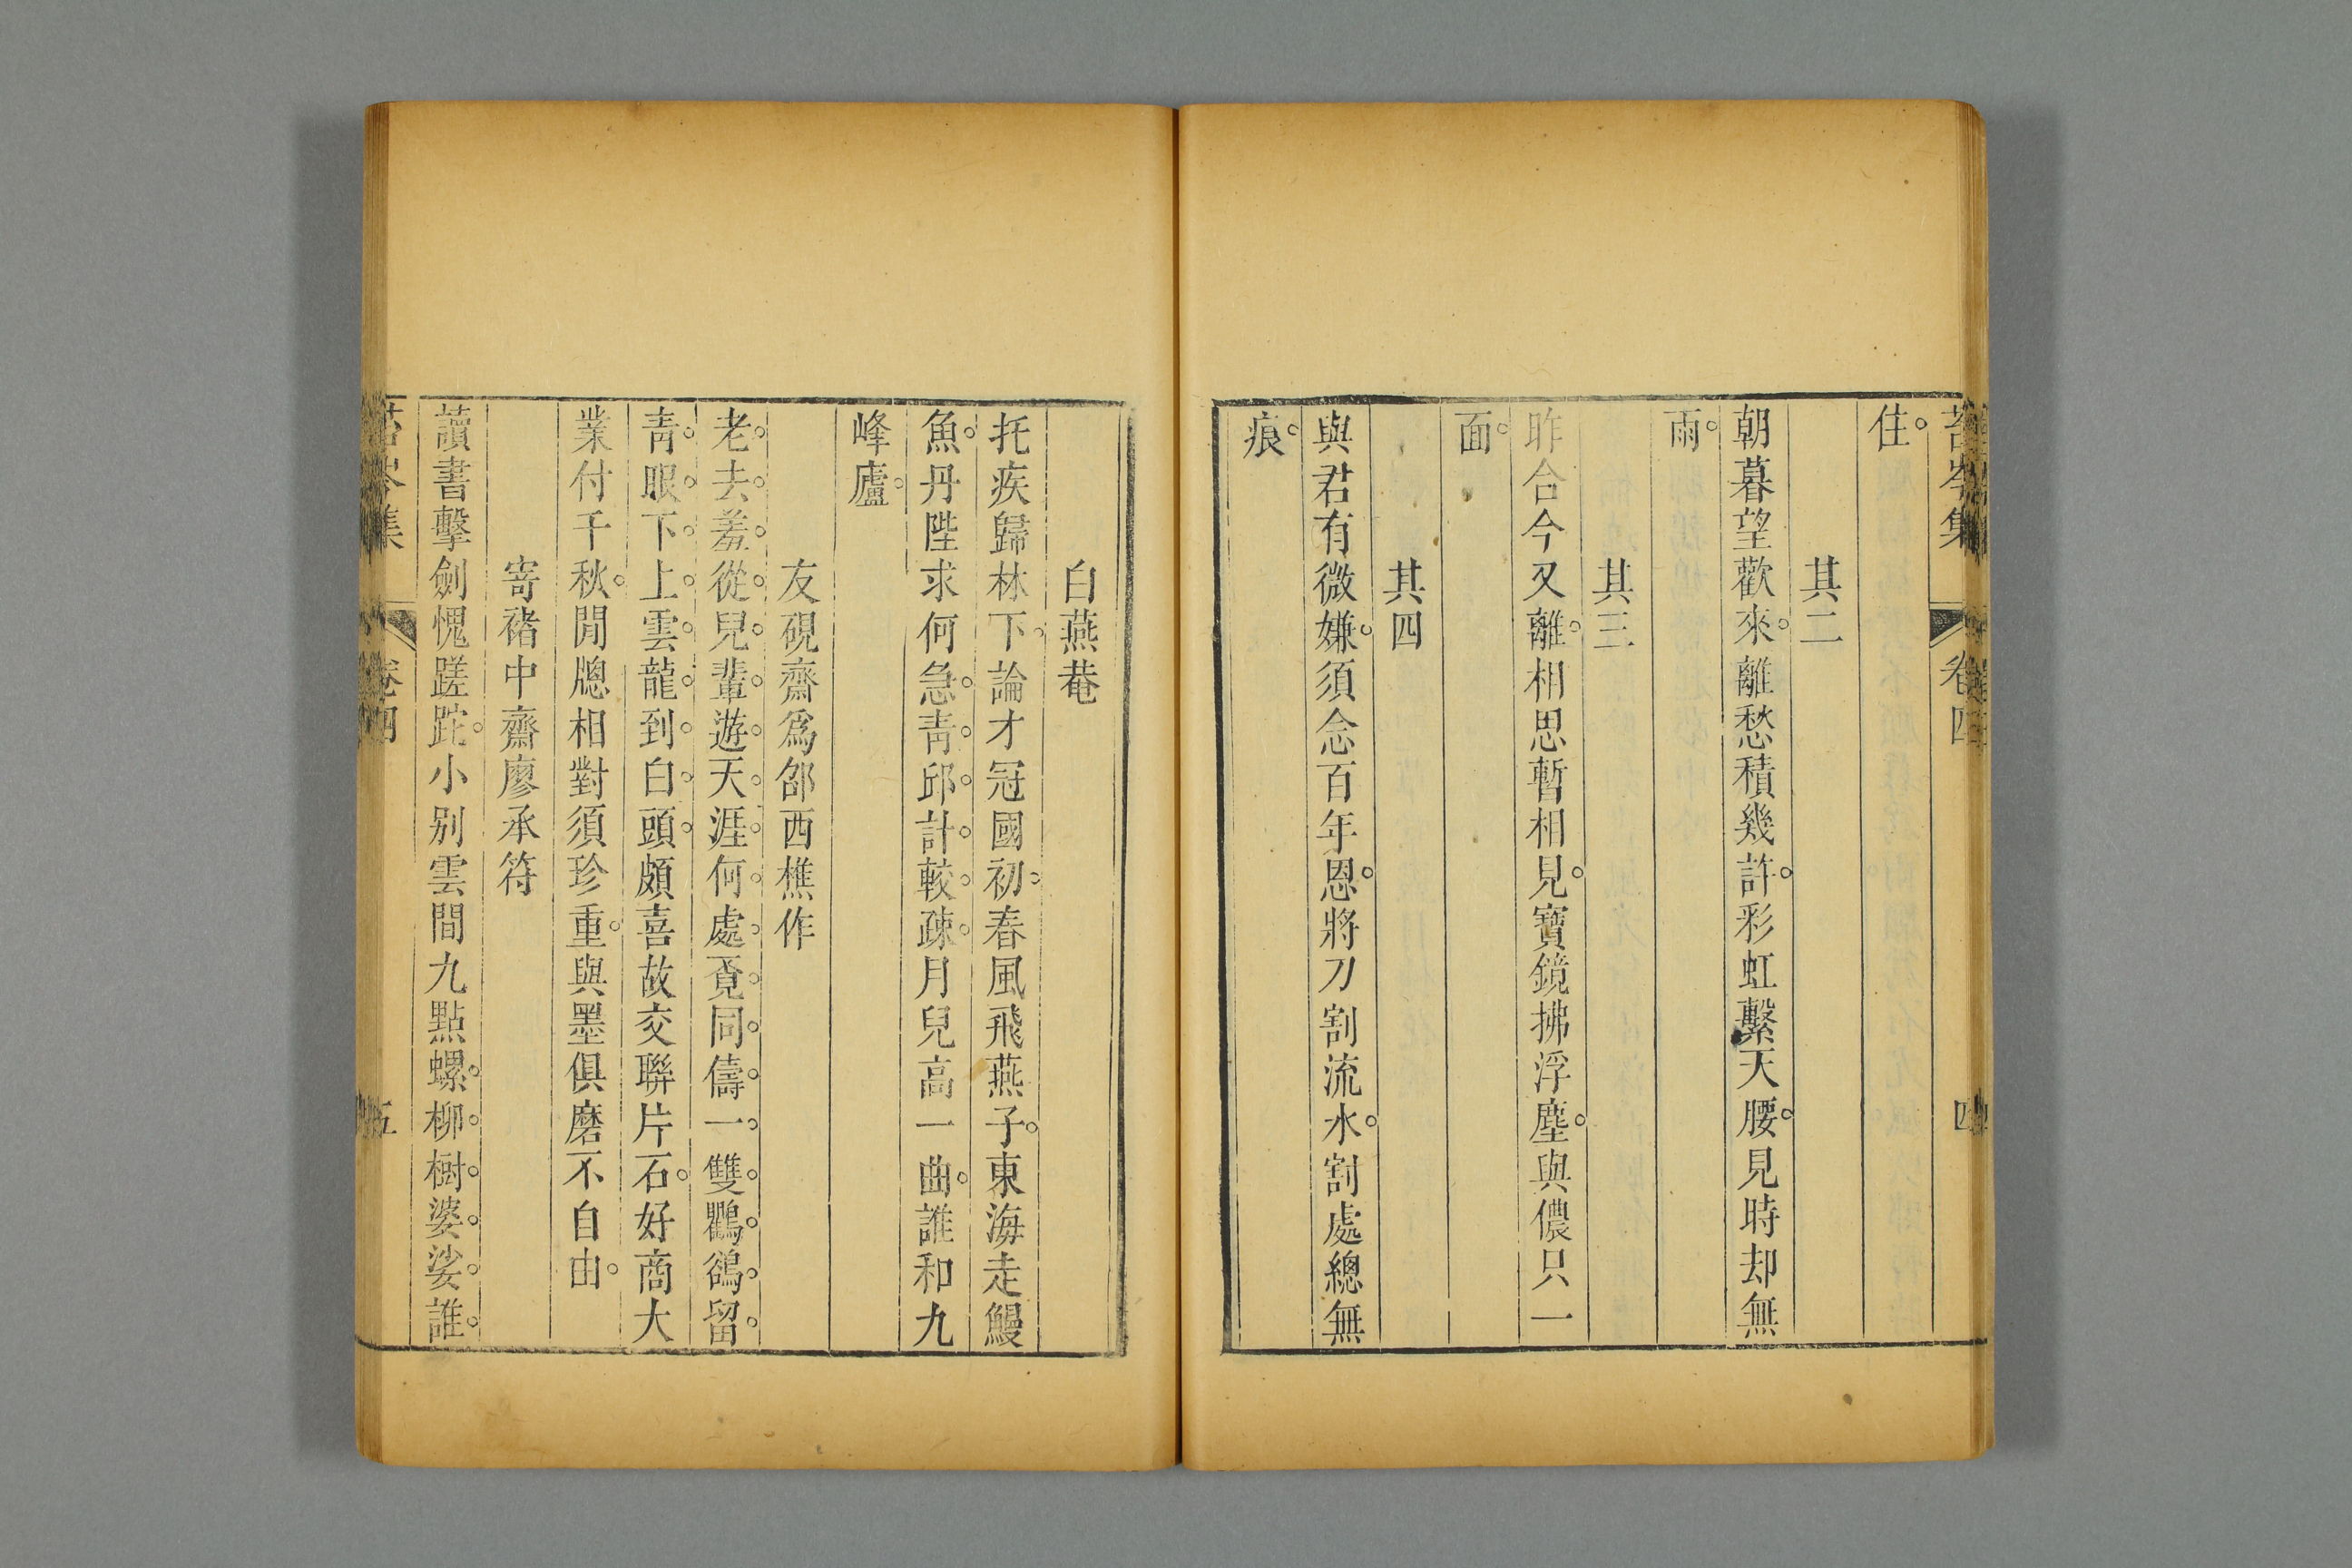 苔岑集 卷四 四
住。
其二
朝暮望歡來。離愁積幾許。彩虹繫天腰。見時却無
雨。
其三
昨合今又離。相思暫相見。寶鏡拂浮塵。與儂只一
面。
其四
與君有微嫌。須念百年恩。將刀割流水。割處總無
痕。
白燕菴
托疾歸林下。論才冠國初。春風飛燕子。東海走鰻
魚。丹陛求何急。靑邱計較疎。月兒高一曲。誰和九
峰廬。
友硯齋爲邵西樵作
老去羞從兒輩遊。天涯何處覔同儔。一雙鸜鵒留
靑眼。下上雲龍到白頭。頗喜故交聯片石。好商大
業付千秋。閒牎相對須珍重。與墨俱磨不自由。
寄褚中齋廖承符
讀書擊劍愧蹉跎。小别雲間九點螺。柳樹婆娑誰
苔岑集 卷四 五